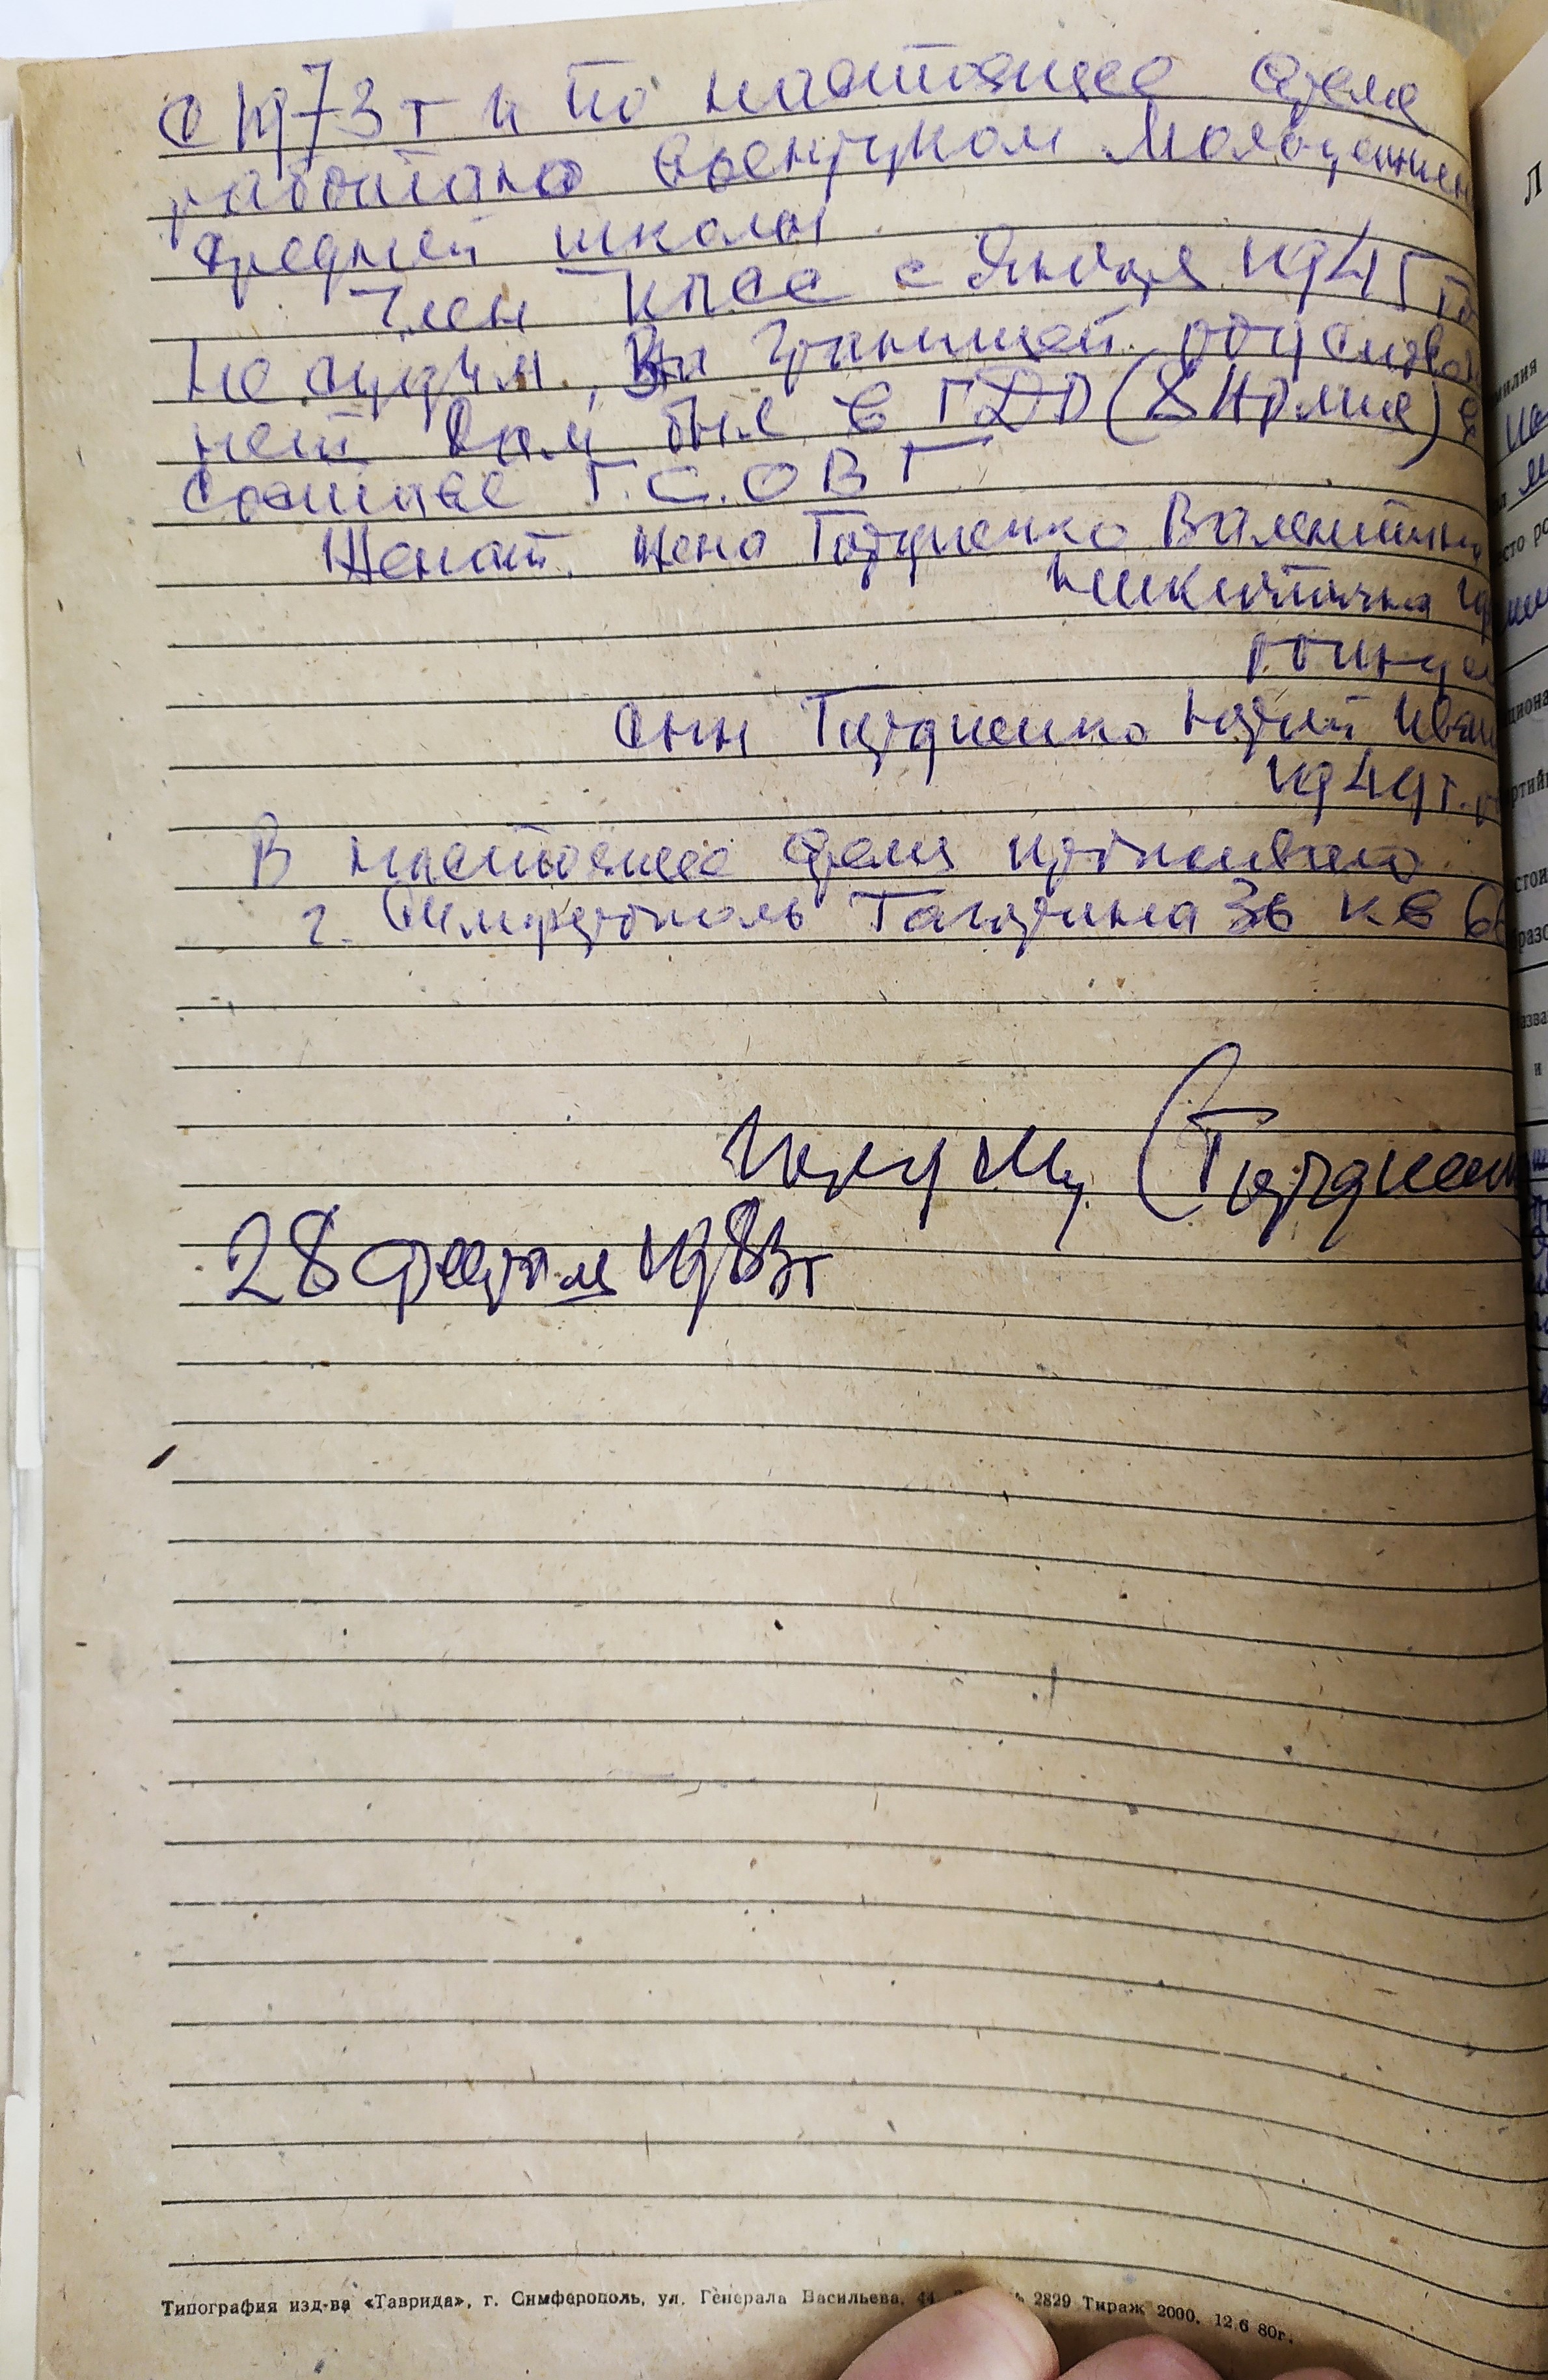 С 1973 г и по настоящее время
работаю военруком Молодежнен
средней школы.
Член КПСС с Января 1945 го
Не судим. За границей родствен
нет Сам был в ГДР (8 Армия) в
составе Г.С.ОВГ
Женат. Жена Гордиенко Валентина
Никитична
Сын Гордиенко Юрий Иван
1949 г. р
В настоящее время проживаю
г. Симферополь Гагарина 36 кв
(Гордиен
28 февраля 1983г
Типография изд-ва «Таврида», г. Симферополь, ул. Генерала Васильева, 44. 2829 Тираж 2000. 12.6 80г.
Л
милия
сто ро
циона
ртий
стои
разо
азва
и